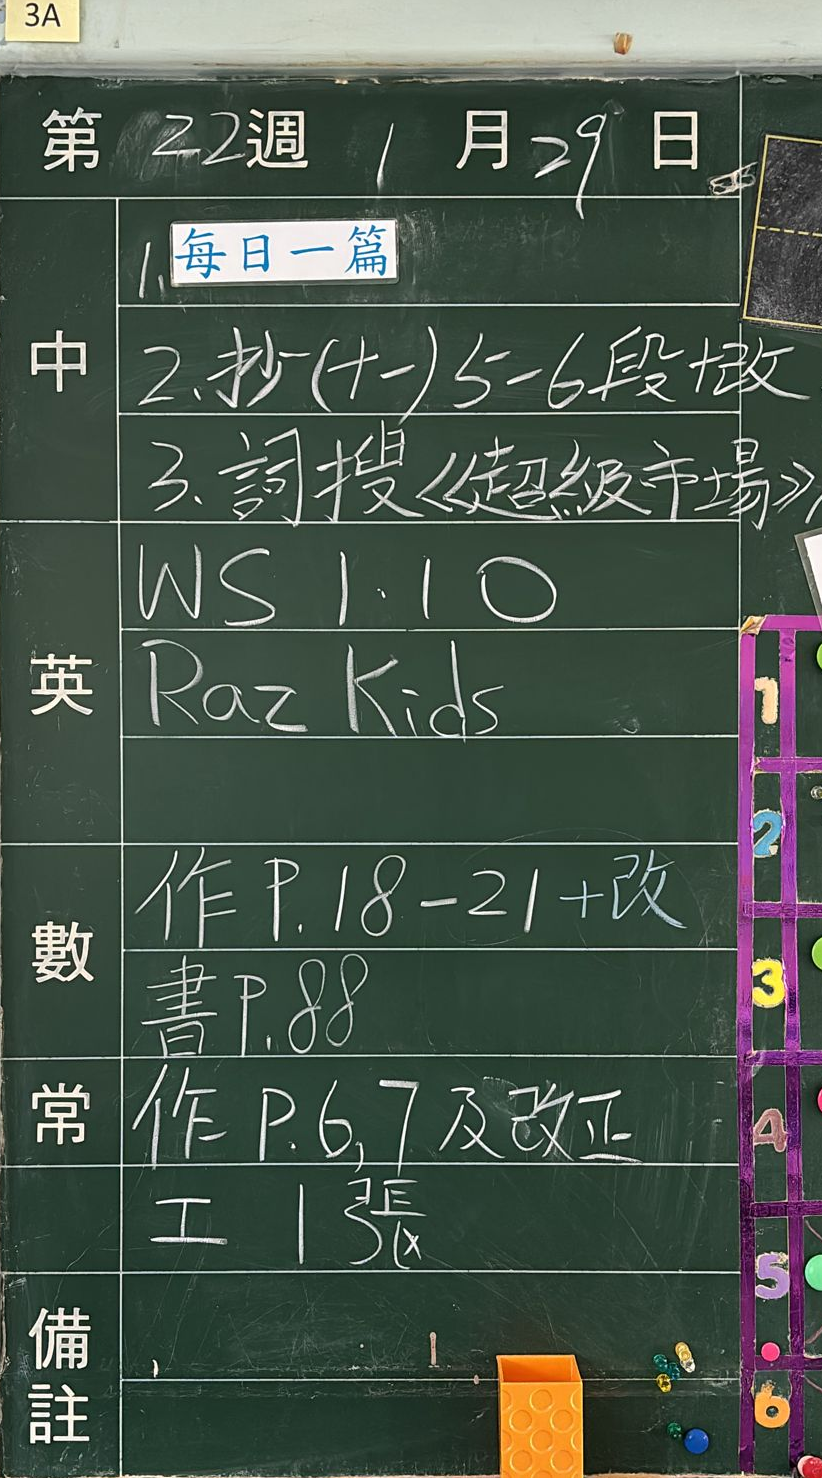 3A
第 22 週 1 月 29 日
中
1. 每日一篇
2. 抄(十一) 5-6段+改
3. 詞搜《超級市場》
英
WS 1.10
Raz Kids
數
作 P.18-21+改
書 P.88
常
作 P.6,7 及改正
工 1 張
備註
1
2
3
4
5
6